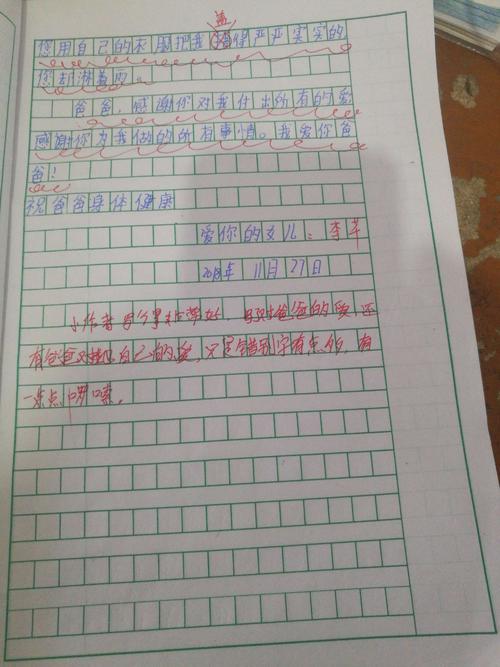 盖
您用自己的衣服把我得严严实实的
您却淋着雨。
爸爸，感谢你对我付出所有的爱
感谢你为我做的所有事情。我爱你爸
爸！
祝爸爸身体健康
爱你的女儿：李芊
2018年 11月27日
小作者写得好，对爸爸的爱，还
有爸爸对自己的爱，只是错别字有点多，有
一点点啰嗦。